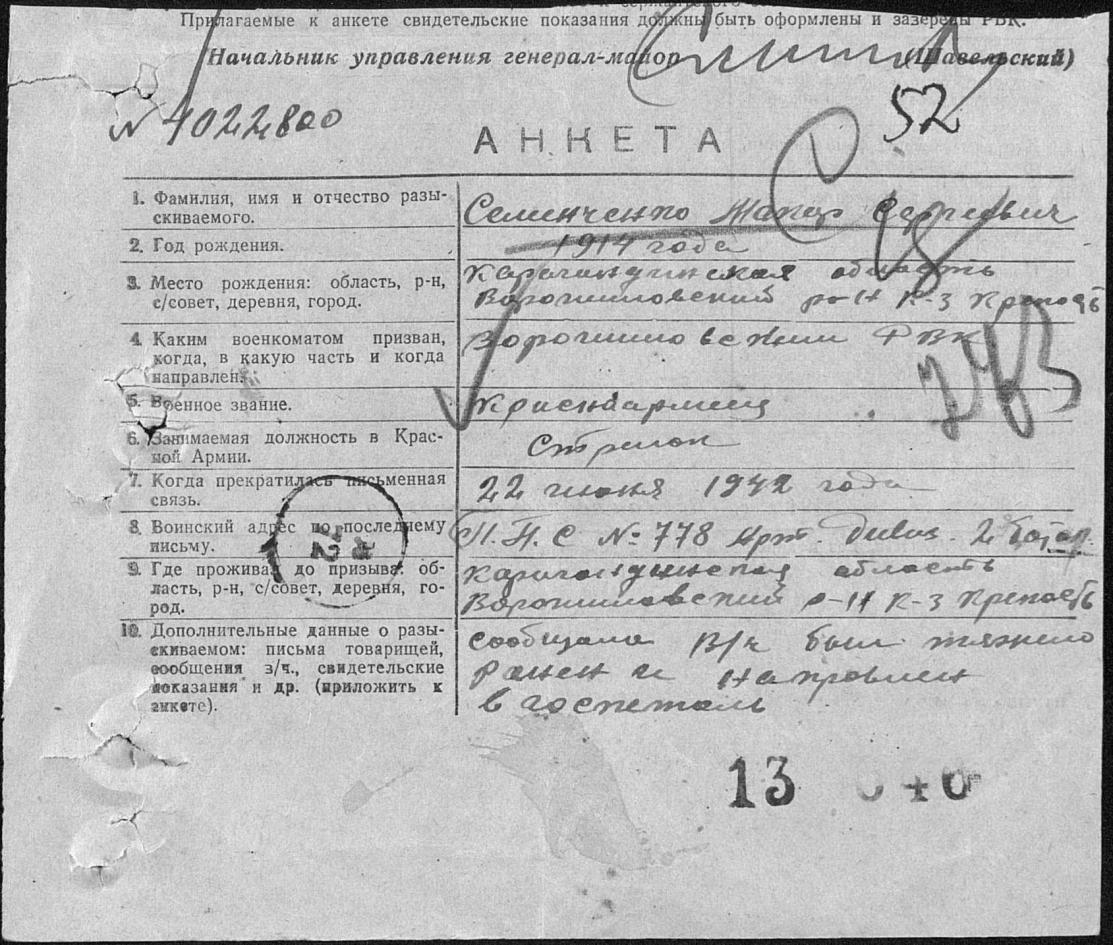 Прилагаемые к анкете свидетельские показания должны быть оформлены и РВК.
Начальник управления генерал-майор (Шавельский)
N 1022800
52
АНКЕТА
1. Фамилия, имя и отчество разы-
скиваемого.
Семенченко Сергеевич
2. Год рождения.
1914 года
3. Место рождения: область, р-н,
с/совет, деревня, город.
Карагандинская область
Ворошиловский р-н к-з Крепость
4. Каким военкоматом призван,
когда, в какую часть и когда
направлен.
Ворошиловским РВК
5. Военное звание.
Красноармеец
6. Занимаемая должность в Крас-
ной Армии.
Стрелок
7. Когда прекратилась письменная
связь.
22 июня 1942 года
8. Воинский адрес по последнему
письму.
П.П.С № 778 Арт. Дивиз. 2 батар.
9. Где проживал до призыва: об-
ласть, р-н, с/совет, деревня, го-
род.
Карагандинская область
Ворошиловский р-н к-з Крепость
10. Дополнительные данные о разы-
скиваемом: письма товарищей,
сообщения в/ч., свидетельские
показания и др. (приложить к
анкете).
сообщала В/ч был тяжело
ранен и направлен
в госпеталь
13